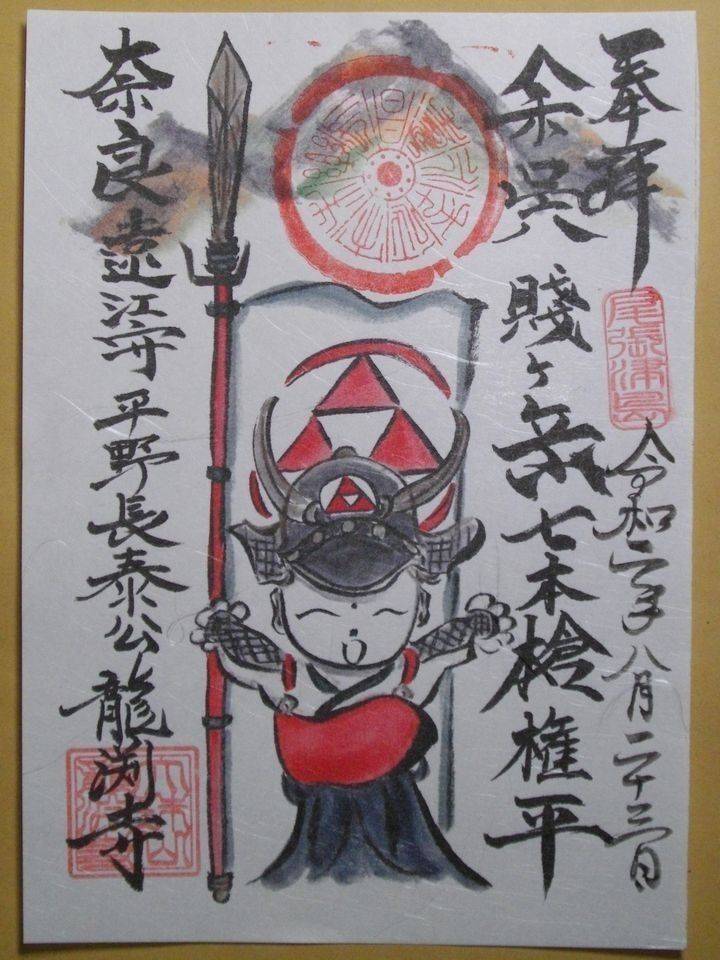 奉拝
尾張津島
令和二年八月二十三日
余呉 賤ヶ岳七本槍 権平
奈良遠江守平野長泰公 龍渕寺